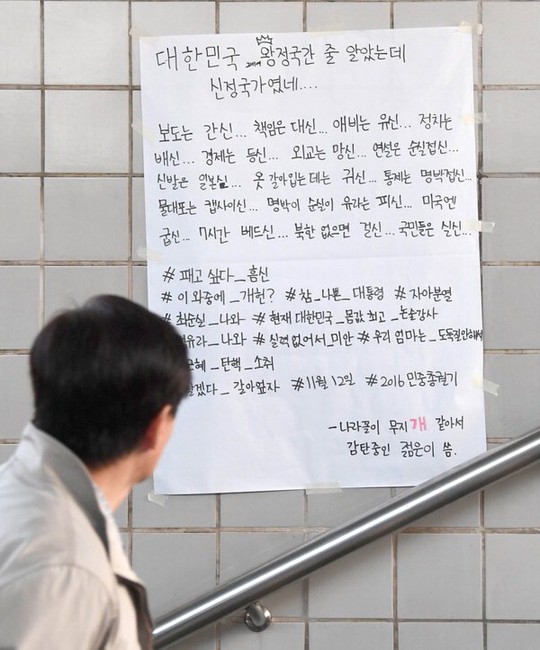 대한민국 왕정국간 줄 알았는데
신정국가였네....
보도는 간신... 책임은 대신... 애비는 유신... 정치는
배신... 경제는 등신... 외교는 망신... 연설은 순실접신...
신발은 일본실... 옷 갈아입는 데는 귀신... 통제는 명박접신...
물대포는 캡사이신... 명박이 순실이 유라는 피신... 미국엔
굽신... 7시간 베드신... 북한 없으면 걸신... 국민들은 실신...
# 패고 싶다_흠신
# 이 와중에_개헌? # 참_나쁜_대통령 # 자아분열
# 최순실_나와 # 현재 대한민국_몸값 최고_논술강사
유라_나와 # 실력 없어서_미안 # 우리 엄마는_도둑질안해서
근혜_탄핵_소취
갈아엎자 #11월 12일 #2016 민중총궐기
-나라꼴이 무지개 같아서
감탄중인 젊은이 씀.